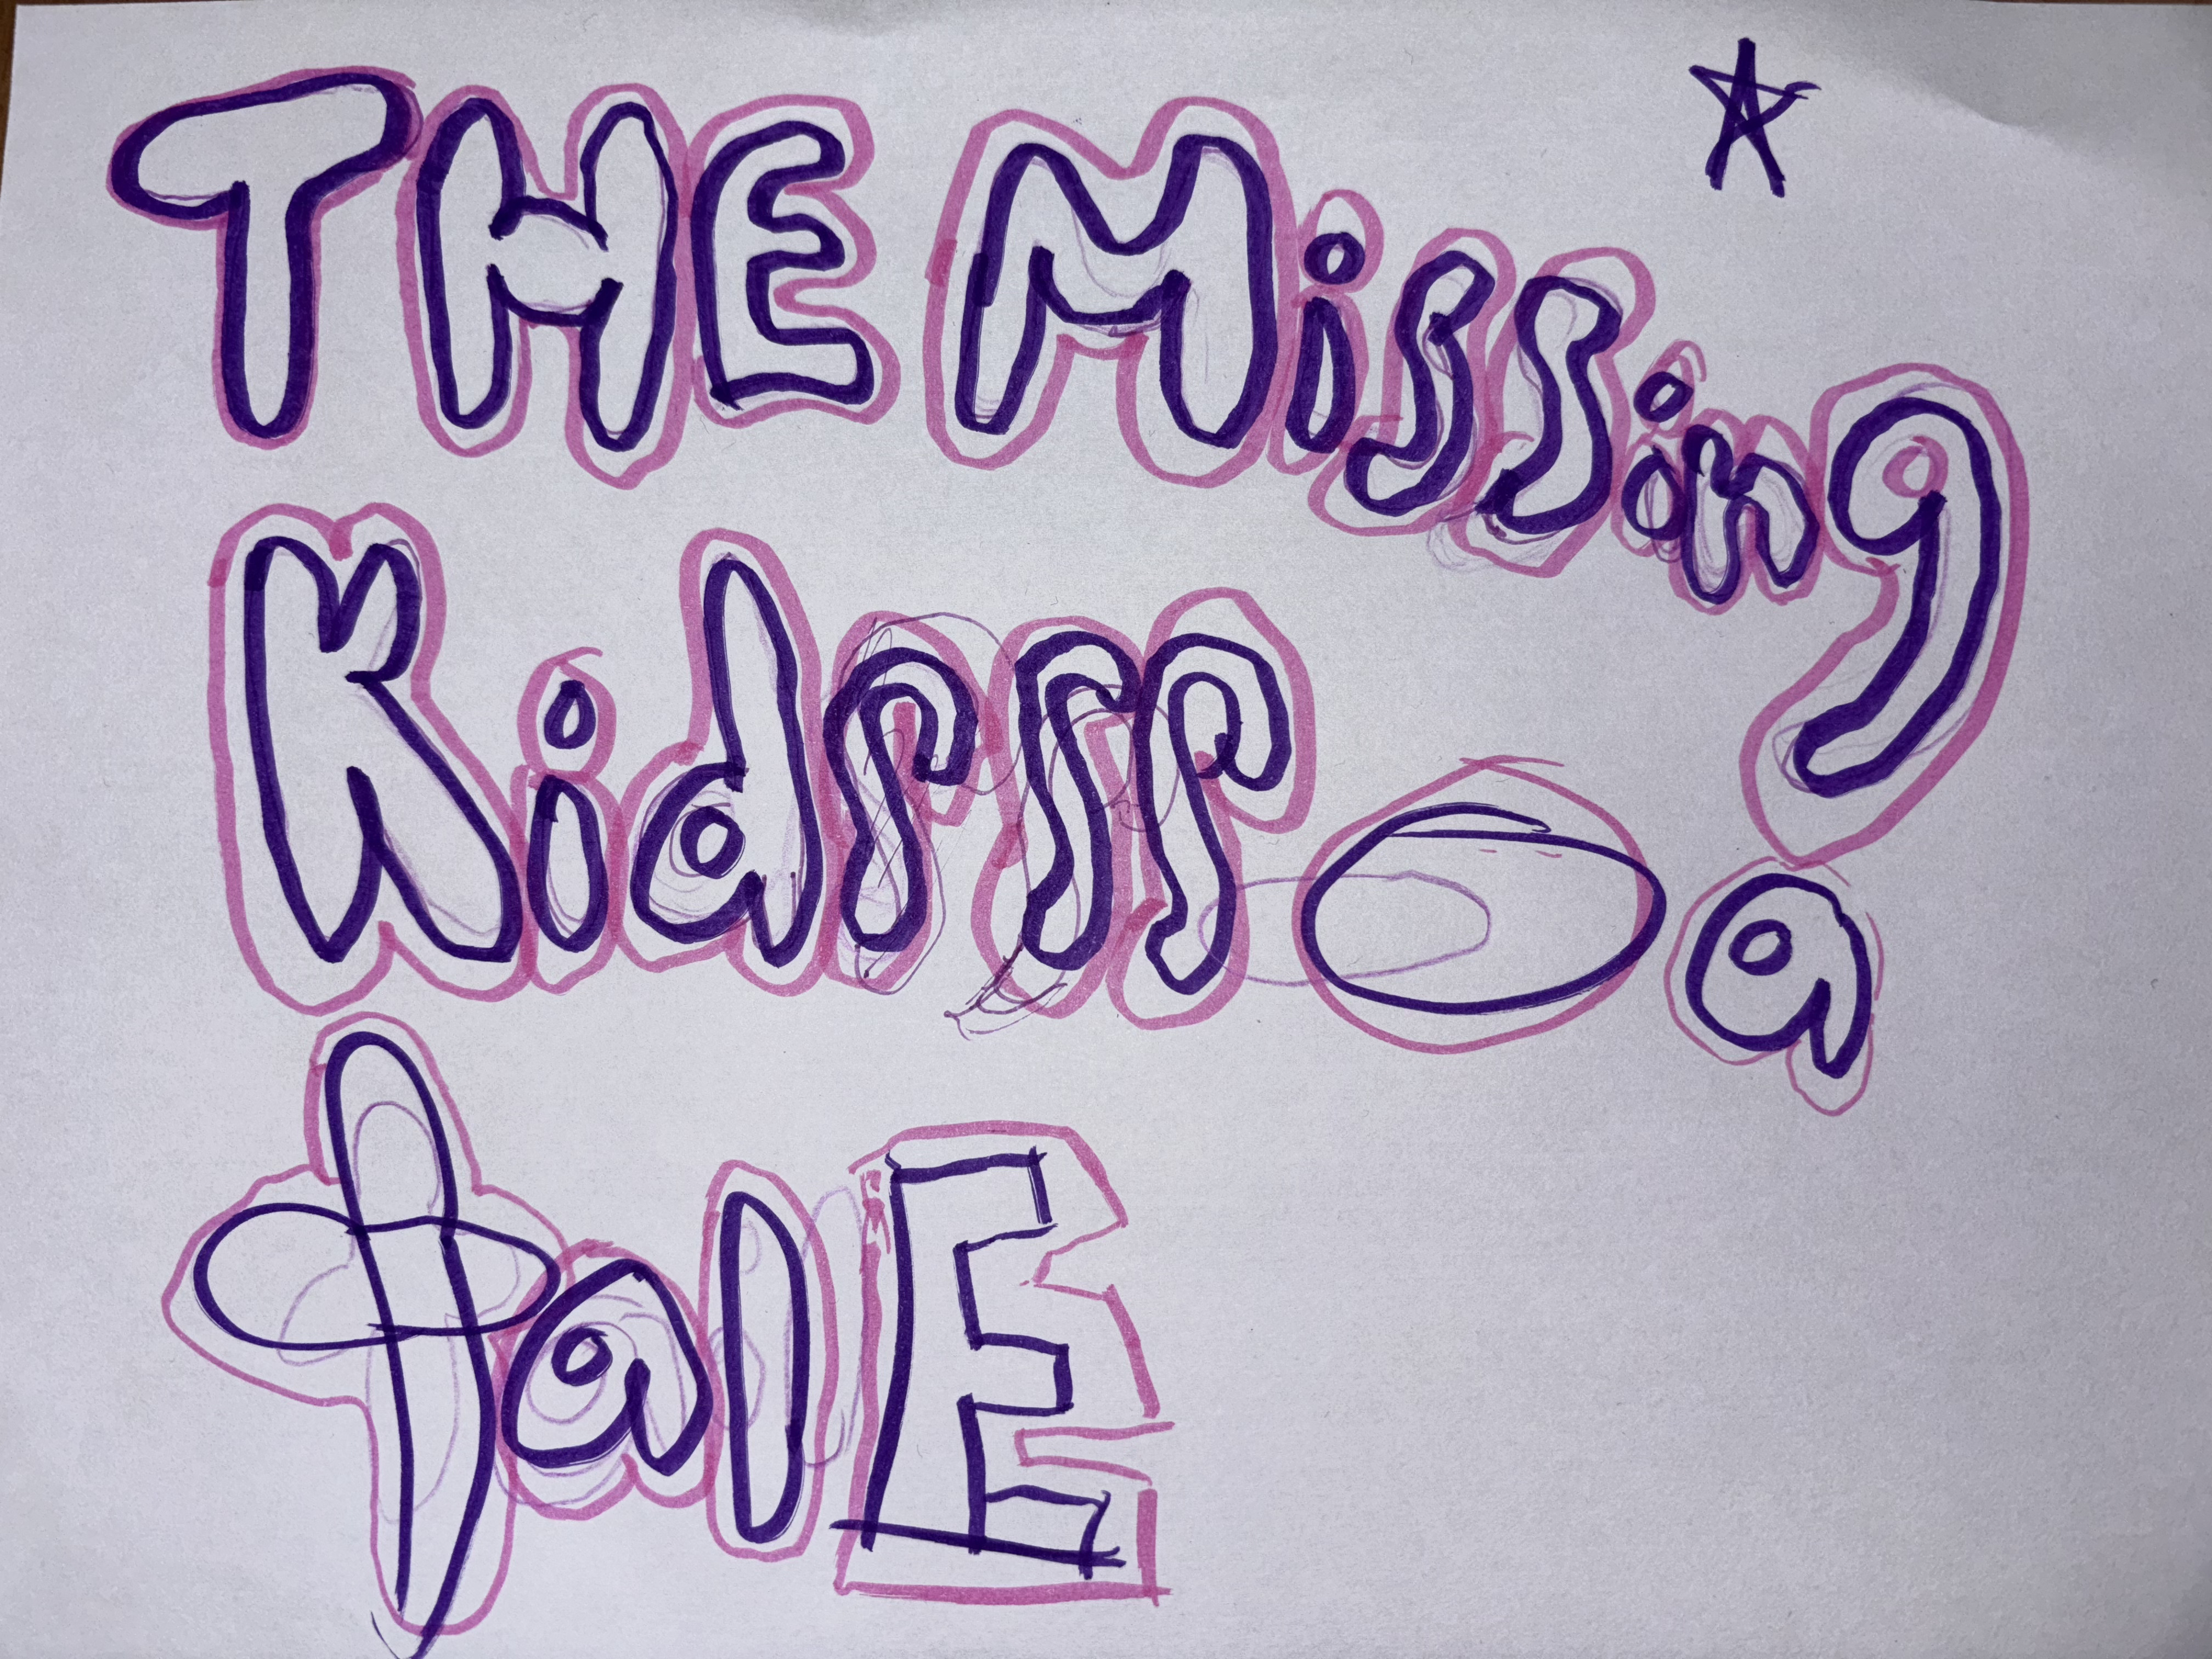 THE Missing
Kidsss - a
talE